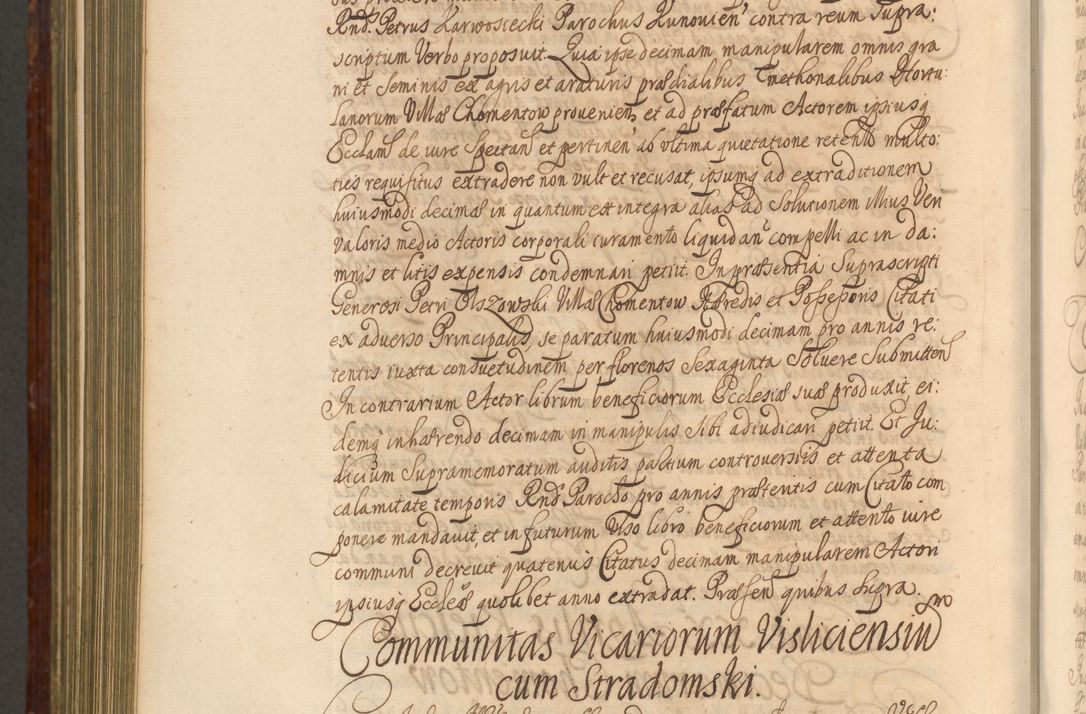 Rnd. Petrus Zarwoscecki Parochus Kunovien contra reum supra:
scriptum Verbo proposuit. Quia ipse decimam manipularem omnis gra
ni et Seminis ex agris et araturis prædialibus Cmethonalibus Hortu:
lanorum Villæ Chomentow provenien, et ad præfatum Actorem ipsiusq
Ecclam de iure Spectan et pertinen ab ultima quietatione retento multo:
ties requisitus extradere non vult et recusat, ipsumq ad extraditionem
huiusmodi decimæ in quantum est integra alias ad Solutionem illius Veri
valoris medio Actoris corporali iuramento liquidan compelli ac in da:
mnis et litis expensis condemnari petiit. In præsentia Suprascripti
Generosi Petri Olszowski Villæ Chomentow Hæredis et Possessoris Citati
ex adverso Principalis, se paratum huiusmodi decimam pro annis re:
tentis iuxta consvetudinem per florenos Sexaginta Solvere Submitten
In contrarium Actor librum beneficiorum Ecclesiæ suæ produxit, ei:
demq inhærendo decimam in manipulis Sibi adiudicari petiit. Et Ju:
dicium Supramemoratum auditis partium controversiis et attenta
calamitate temporis Rndo Parocho pro annis prætentis cum Citato com
ponere mandavit, et in futurum Viso libro beneficiorum et attento iure
communi decrevit quatenus Citatus decimam manipularem Actori
ipsiusq Eccleæ quolibet anno extradat. Præsen quibus supra.
Communitas Vicariorum Visliciensium
cum Stradomski.